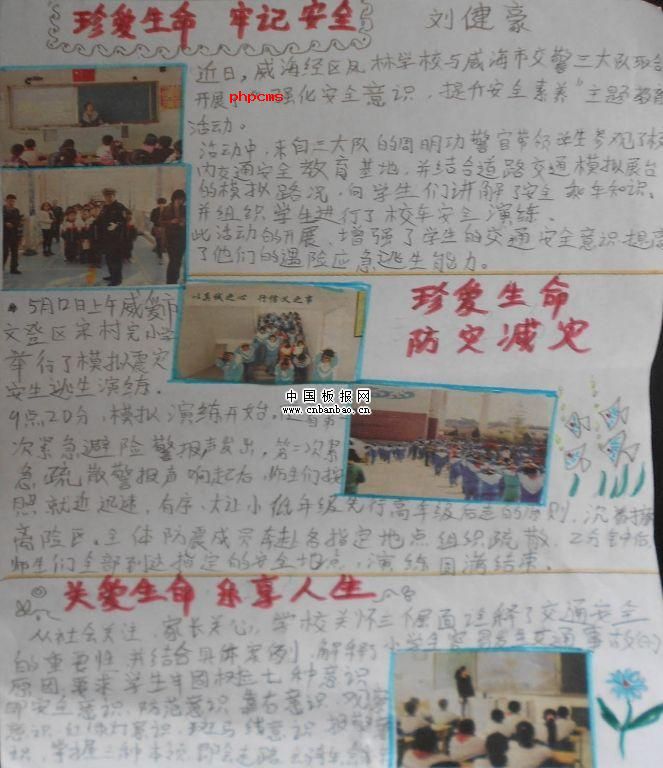 珍爱生命 牢记安全
刘健豪
近日,威海经区凤林学校与威海市交警三大队联合
开展 phpcms 强化安全意识,提升安全素养"主题教育
活动。
活动中,来自三大队的周明功警官带领学生参观了校
内交通安全教育基地,并结合道路交通模拟展台
的模拟路况,向学生们讲解了安全乘车知识,
并组织学生进行了校车安全演练。
此活动的开展,增强了学生的交通安全意识提高
了他们的遇险应急逃生能力。
以真诚之心 行信义之事
珍爱生命
防灾减灾
5月12日上午威海市
文登区宋村完小学
举行了模拟震灾
安全逃生演练。
9点20分,模拟演练开始。
次紧急避险警报声发出,第二次紧
急疏散警报声响起后,师生们按
照就近迅速,有序,大让小低年级先行高年级后走的原则,
离险区。全体防震成员奔赴各指定地点组织疏散,2分钟后,
师生们全部到达指定的安全地点,演练圆满结束。
中国板报网
www.cnbanbao.cn
关爱生命 乐享人生
从社会关注,家长关心,学校关怀三个层面诠释了交通安全
的重要性,并结合具体案例,解析了小学生容易发生交通事故的
原因,要求学生牢固树立七种意识
即安全意识,防范意识,靠右意识,
意识,红绿灯意识,斑马线意识,
识,掌握三种本领,即会走路